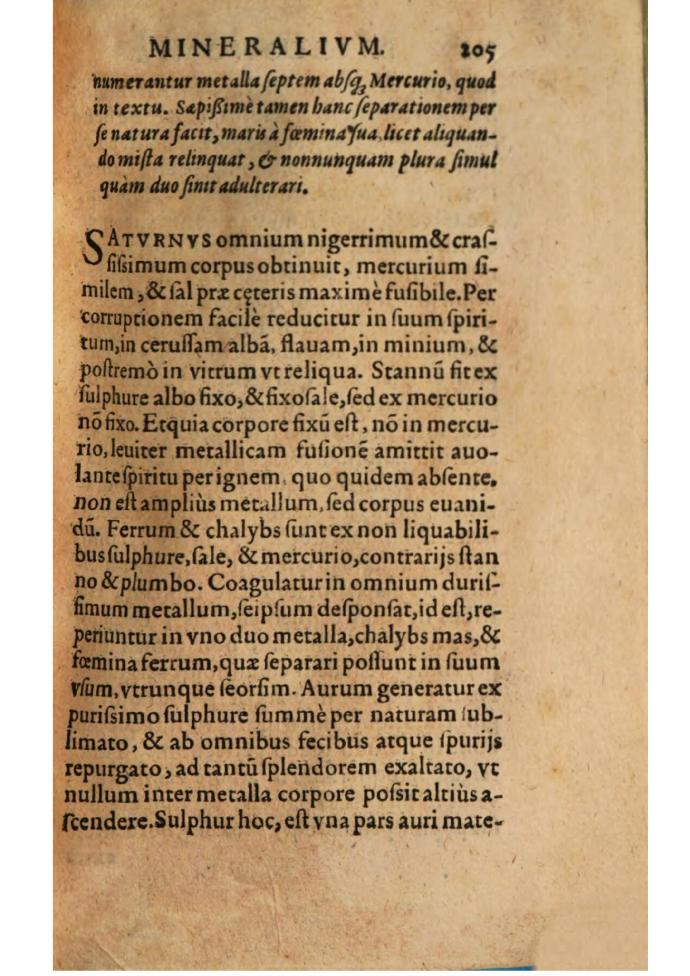 MINERALIVM. 205
numerantur metalla ſeptem abſq; Mercurio, quod
in textu. Sæpißimè tamen hanc ſeparationem per
ſe natura facit, maris à fœmina ſua, licet aliquan-
do miſta relinquat, & nonnunquam plura ſimul
quàm duo ſinit adulterari.
SATVRNVS omnium nigerrimum & craſ-
ſiſsimum corpus obtinuit, mercurium ſi-
milem, & ſal præ cęteris maximè fuſibile. Per
corruptionem facilè reducitur in ſuum ſpiri-
tum, in ceruſſam albā, flauam, in minium, &
poſtremò in vitrum vt reliqua. Stannū fit ex
ſulphure albo fixo, & fixo ſale, ſed ex mercurio
nō fixo. Et quia corpore fixū eſt, nō in mercu-
rio, leuiter metallicam fuſionē amittit auo-
lante ſpiritu per ignem, quo quidem abſente,
non eſt ampliùs metallum, ſed corpus euani-
dū. Ferrum & chalybs ſunt ex non liquabili-
bus ſulphure, ſale, & mercurio, contrarijs ſtan
no & plumbo. Coagulatur in omnium duriſ-
ſimum metallum, ſeipſum deſponſat, id eſt, re-
periuntur in vno duo metalla, chalybs mas, &
fœmina ferrum, quæ ſeparari poſſunt in ſuum
vſum, vtrunque ſeorſim. Aurum generatur ex
puriſsimo ſulphure ſummè per naturam ſub-
limato, & ab omnibus fecibus atque ſpurijs
repurgato, ad tantū ſplendorem exaltato, vt
nullum inter metalla corpore poſsit altiùs a-
ſcendere. Sulphur hoc, eſt vna pars auri mate-